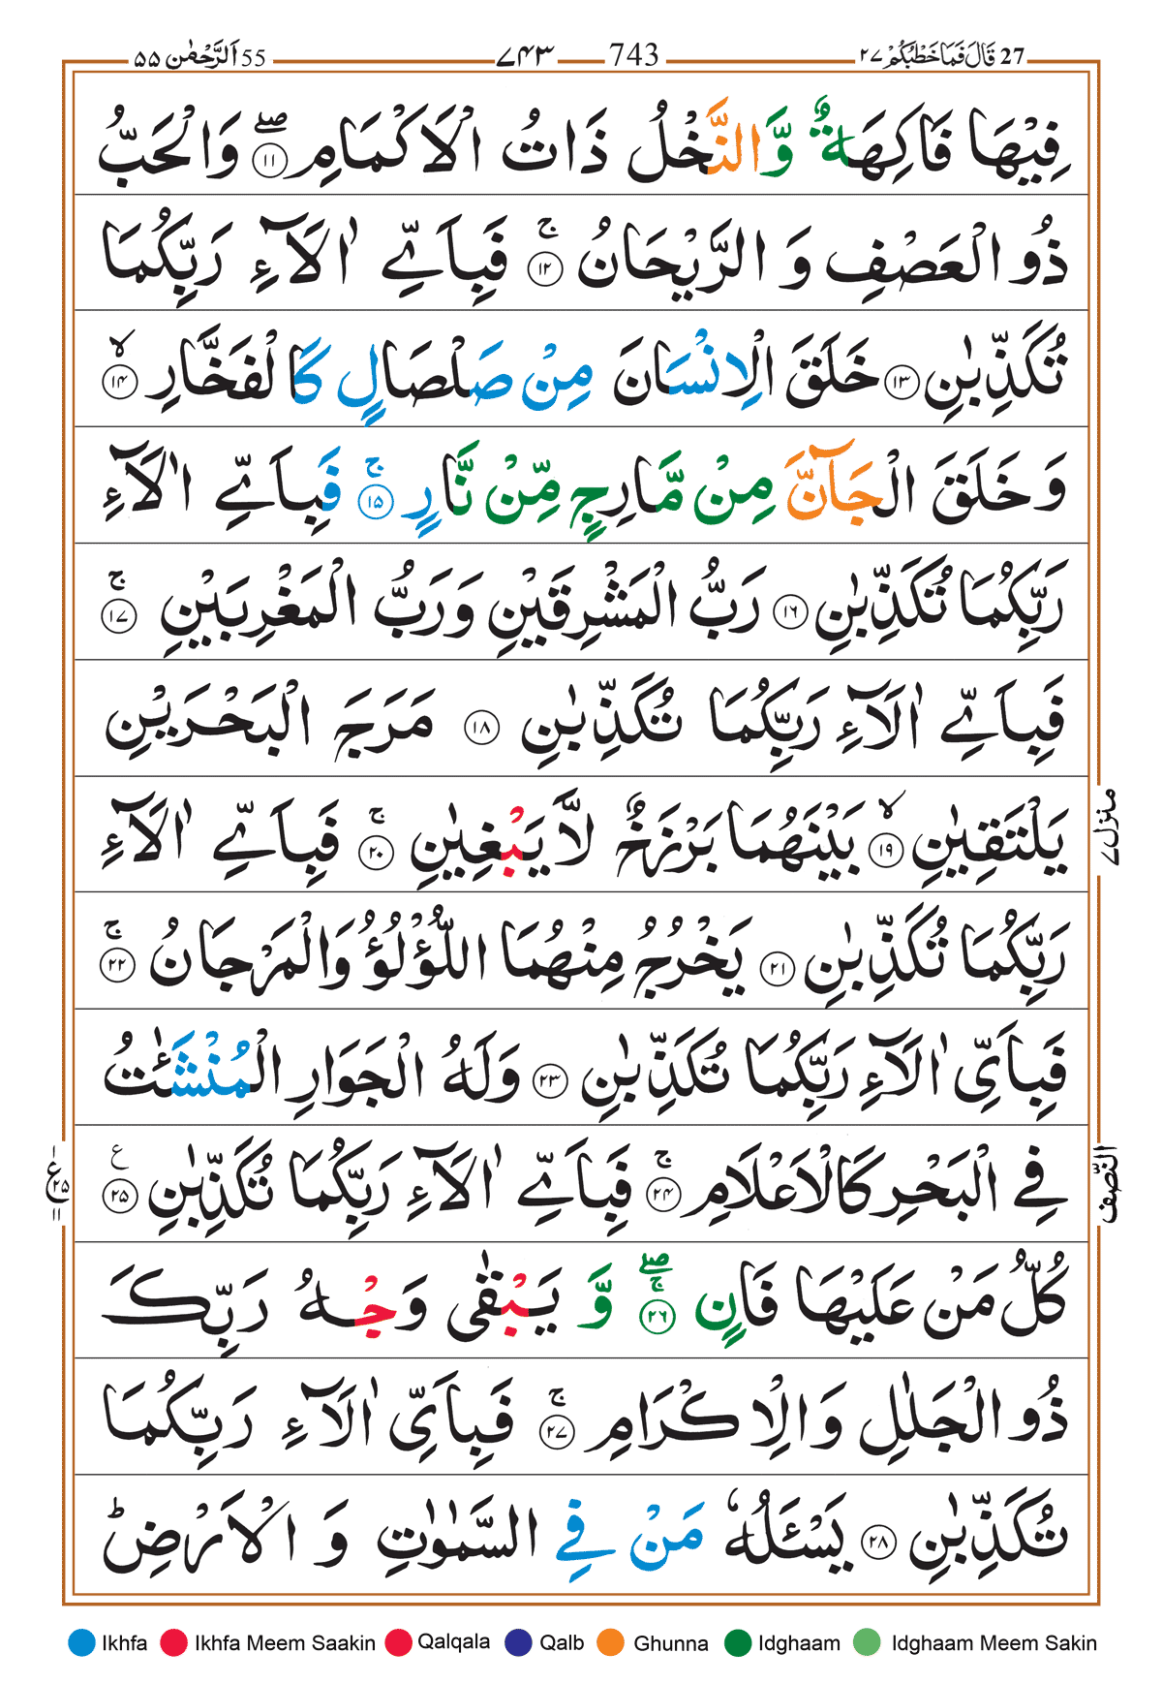 55 اَلرَّحْمٰن ٥٥ ٧٤٣ 743 27 قَالَ فَمَا خَطْبُكُمْ ٢٧
فِيْهَا فَاكِهَةٌ وَّالنَّخْلُ ذَاتُ الْاَكْمَامِ ۖ ١١ وَالْحَبُّ
ذُو الْعَصْفِ وَ الرَّيْحَانُ ۚ ١٢ فَبِاَيِّ اٰلَآءِ رَبِّكُمَا
تُكَذِّبٰنِ ١٣ خَلَقَ الْاِنْسَانَ مِنْ صَلْصَالٍ كَالْفَخَّارِ ۙ ١٤
وَ خَلَقَ الْجَآنَّ مِنْ مَّارِجٍ مِّنْ نَّارٍ ۚ ١٥ فَبِاَيِّ اٰلَآءِ
رَبِّكُمَا تُكَذِّبٰنِ ١٦ رَبُّ الْمَشْرِقَيْنِ وَرَبُّ الْمَغْرِبَيْنِ ۚ ١٧
فَبِاَيِّ اٰلَآءِ رَبِّكُمَا تُكَذِّبٰنِ ١٨ مَرَجَ الْبَحْرَيْنِ
يَلْتَقِيٰنِ ۙ ١٩ بَيْنَهُمَا بَرْزَخٌ لَّا يَبْغِيٰنِ ۚ ٢٠ فَبِاَيِّ اٰلَآءِ
منزل ٧
رَبِّكُمَا تُكَذِّبٰنِ ٢١ يَخْرُجُ مِنْهُمَا اللُّؤْلُؤُ وَالْمَرْجَانُ ۚ ٢٢
فَبِاَيِّ اٰلَآءِ رَبِّكُمَا تُكَذِّبٰنِ ٢٣ وَلَهُ الْجَوَارِ الْمُنْشَئٰتُ
فِي الْبَحْرِ كَالْاَعْلَامِ ۚ ٢٤ فَبِاَيِّ اٰلَآءِ رَبِّكُمَا تُكَذِّبٰنِ ٢٥ ع
النّصف
ع ٢٥ ١١
كُلُّ مَنْ عَلَيْهَا فَانٍ ۖۚ ٢٦ وَّ يَبْقٰى وَجْهُ رَبِّكَ
ذُو الْجَلٰلِ وَالْاِكْرَامِ ۚ ٢٧ فَبِاَيِّ اٰلَآءِ رَبِّكُمَا
تُكَذِّبٰنِ ٢٨ يَسْـَٔلُهٗ مَنْ فِي السَّمٰوٰتِ وَ الْاَرْضِ ؕ
Ikhfa Ikhfa Meem Saakin Qalqala Qalb Ghunna Idghaam Idghaam Meem Sakin